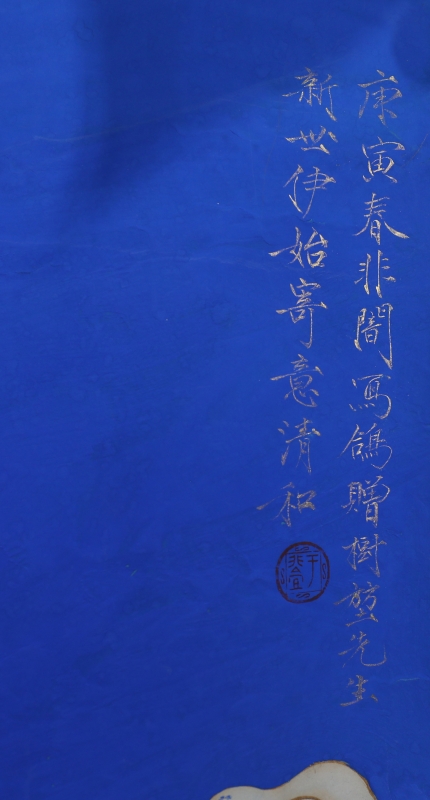 庚寅春非闇寫鴿贈樹堃先生
新世伊始寄意清和